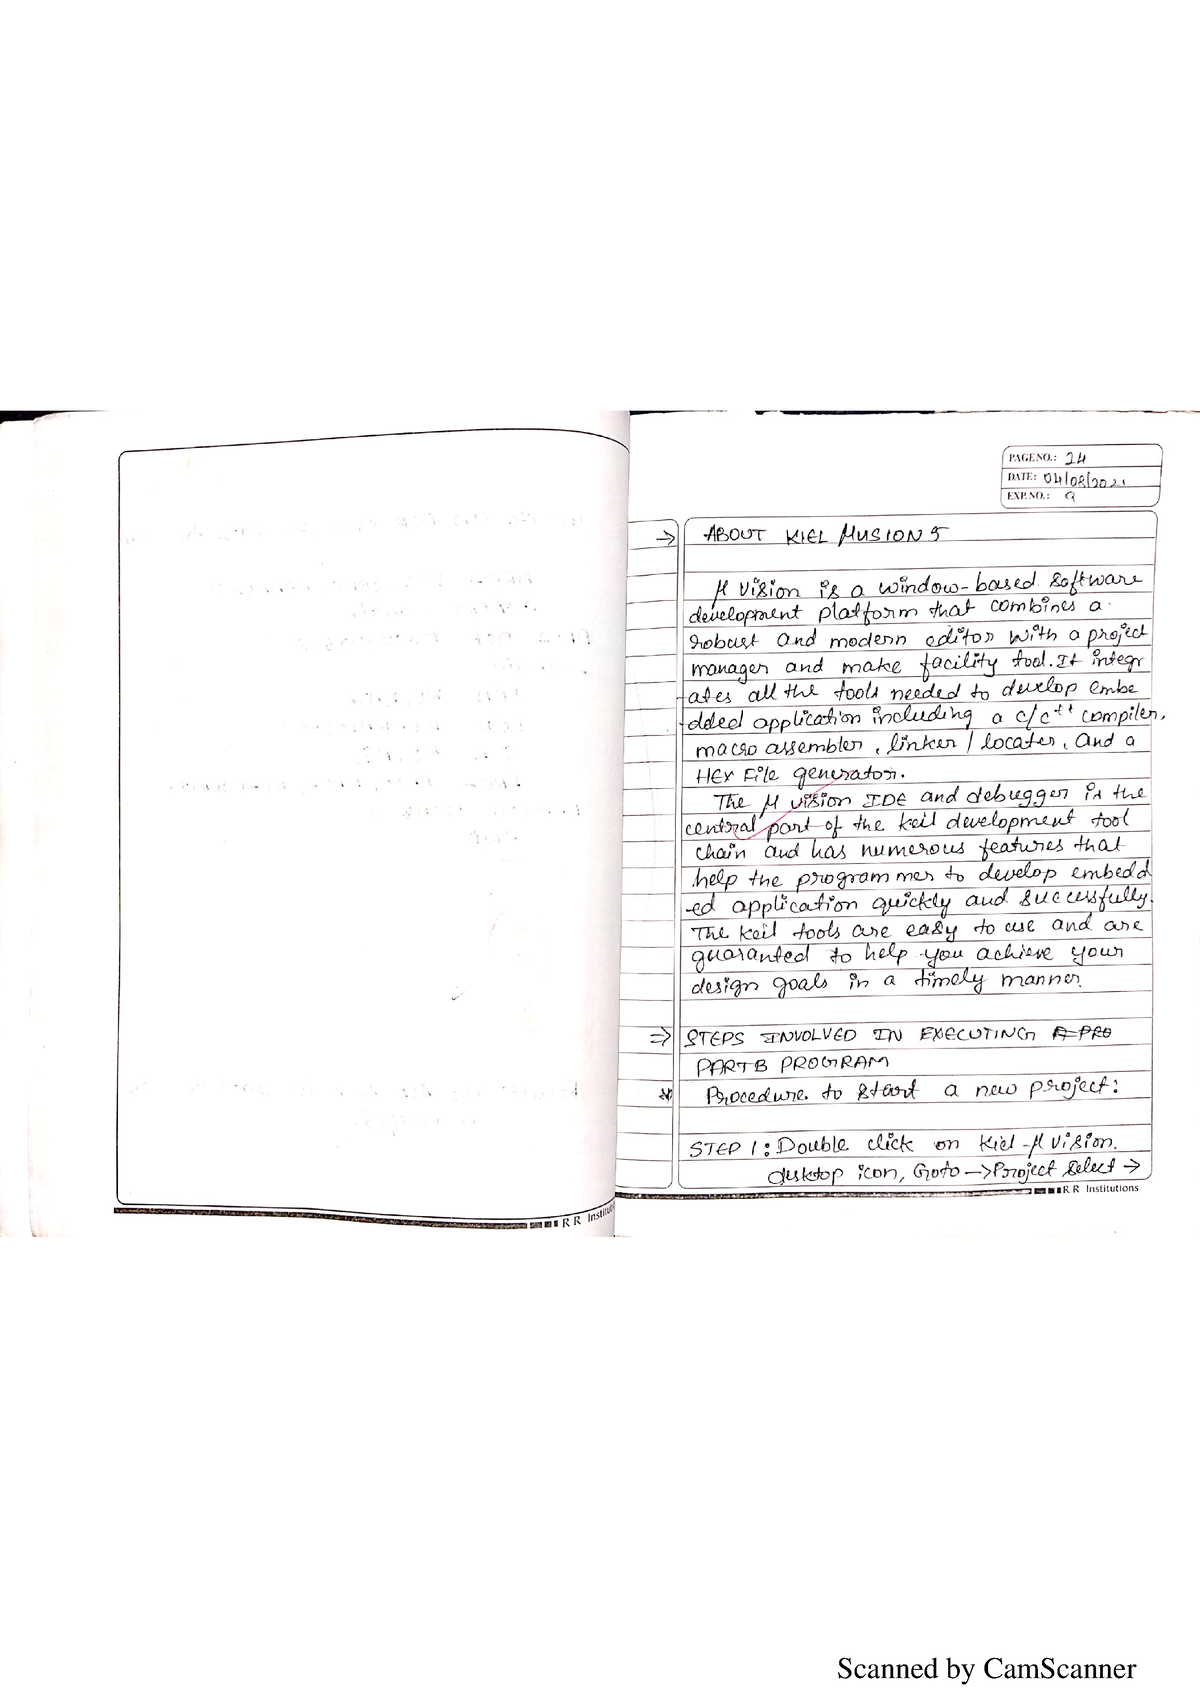 PAGE NO.: 24
DATE: 04/08/2021
EXP. NO.: 9
→ ABOUT KIEL MUSION 5
μ vision is a window-based software
development platform that combines a
robust and modern editor with a project
manager and make facility tool. It integr
ates all the tools needed to develop embe
dded application including a c/c++ compiler,
macro assembler, linker / locater, and a
HEX File generator.
The μ vision IDE and debugger is the
central part of the keil development tool
chain and has numerous features that
help the programmer to develop embedd
ed application quickly and successfully.
The keil tools are easy to use and are
guaranted to help you achieve your
design goals in a timely manner.
⇒ STEPS INVOLVED IN EXECUTING A PRO
PARTB PROGRAM
* Procedure. to start a new project:
STEP 1: Double click on Kiel -μ vision.
desktop icon, Goto → Project select →
RR Institutions
RR Institu
Scanned by CamScanner